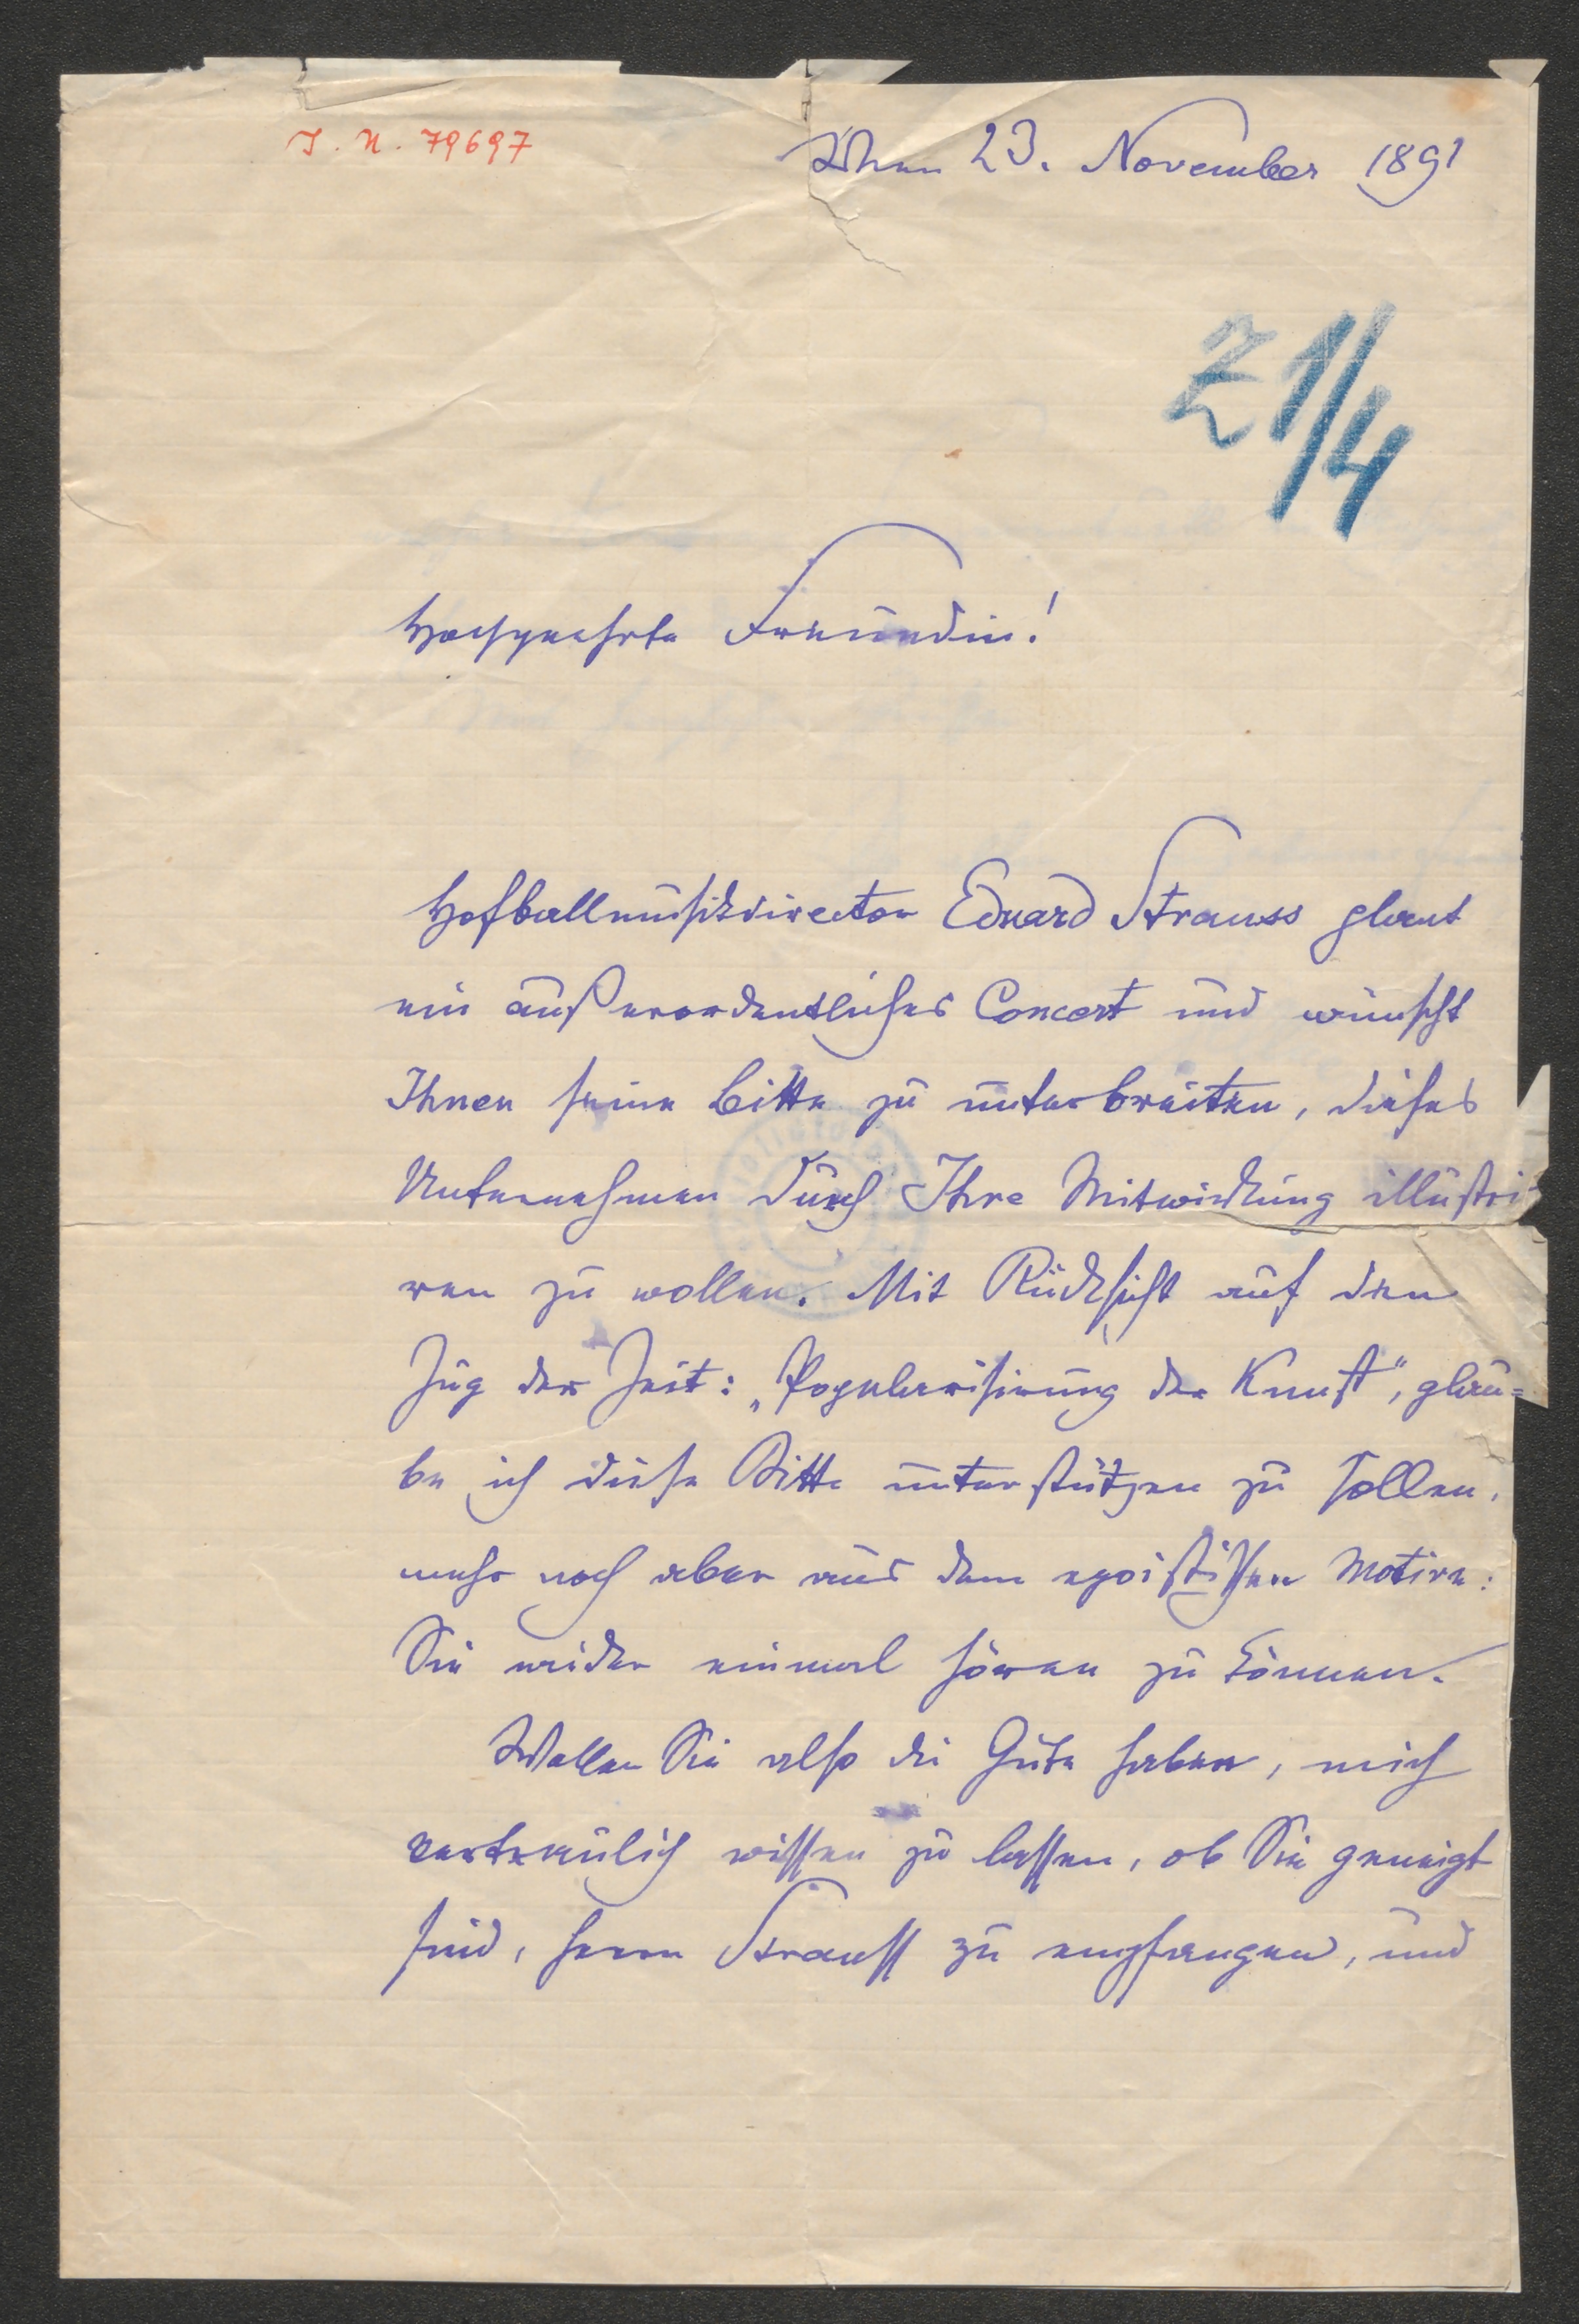 I. N. 79697
Wien 23. November 1891
Z 1/4
Hochgeehrte Freundin!
Hofballmusikdirector Eduard Strauss plant
ein außerordentliches Concert und wünscht
Ihnen seine Bitte zu unterbreiten, dieses
Unternehmen durch Ihre Mitwirkung illustri-
ren zu wollen. Mit Rücksicht auf den
Zug der Zeit: „Popularisirung der Kunst“, glau=
be ich diese Bitte unterstützen zu sollen,
mehr noch aber aus dem egoistischen Motive:
Sie wieder einmal hören zu können.
Wollen Sie also die Güte haben, mich
vertraulich wissen zu lassen, ob Sie geneigt
sind, Herrn Strauss zu empfangen, und